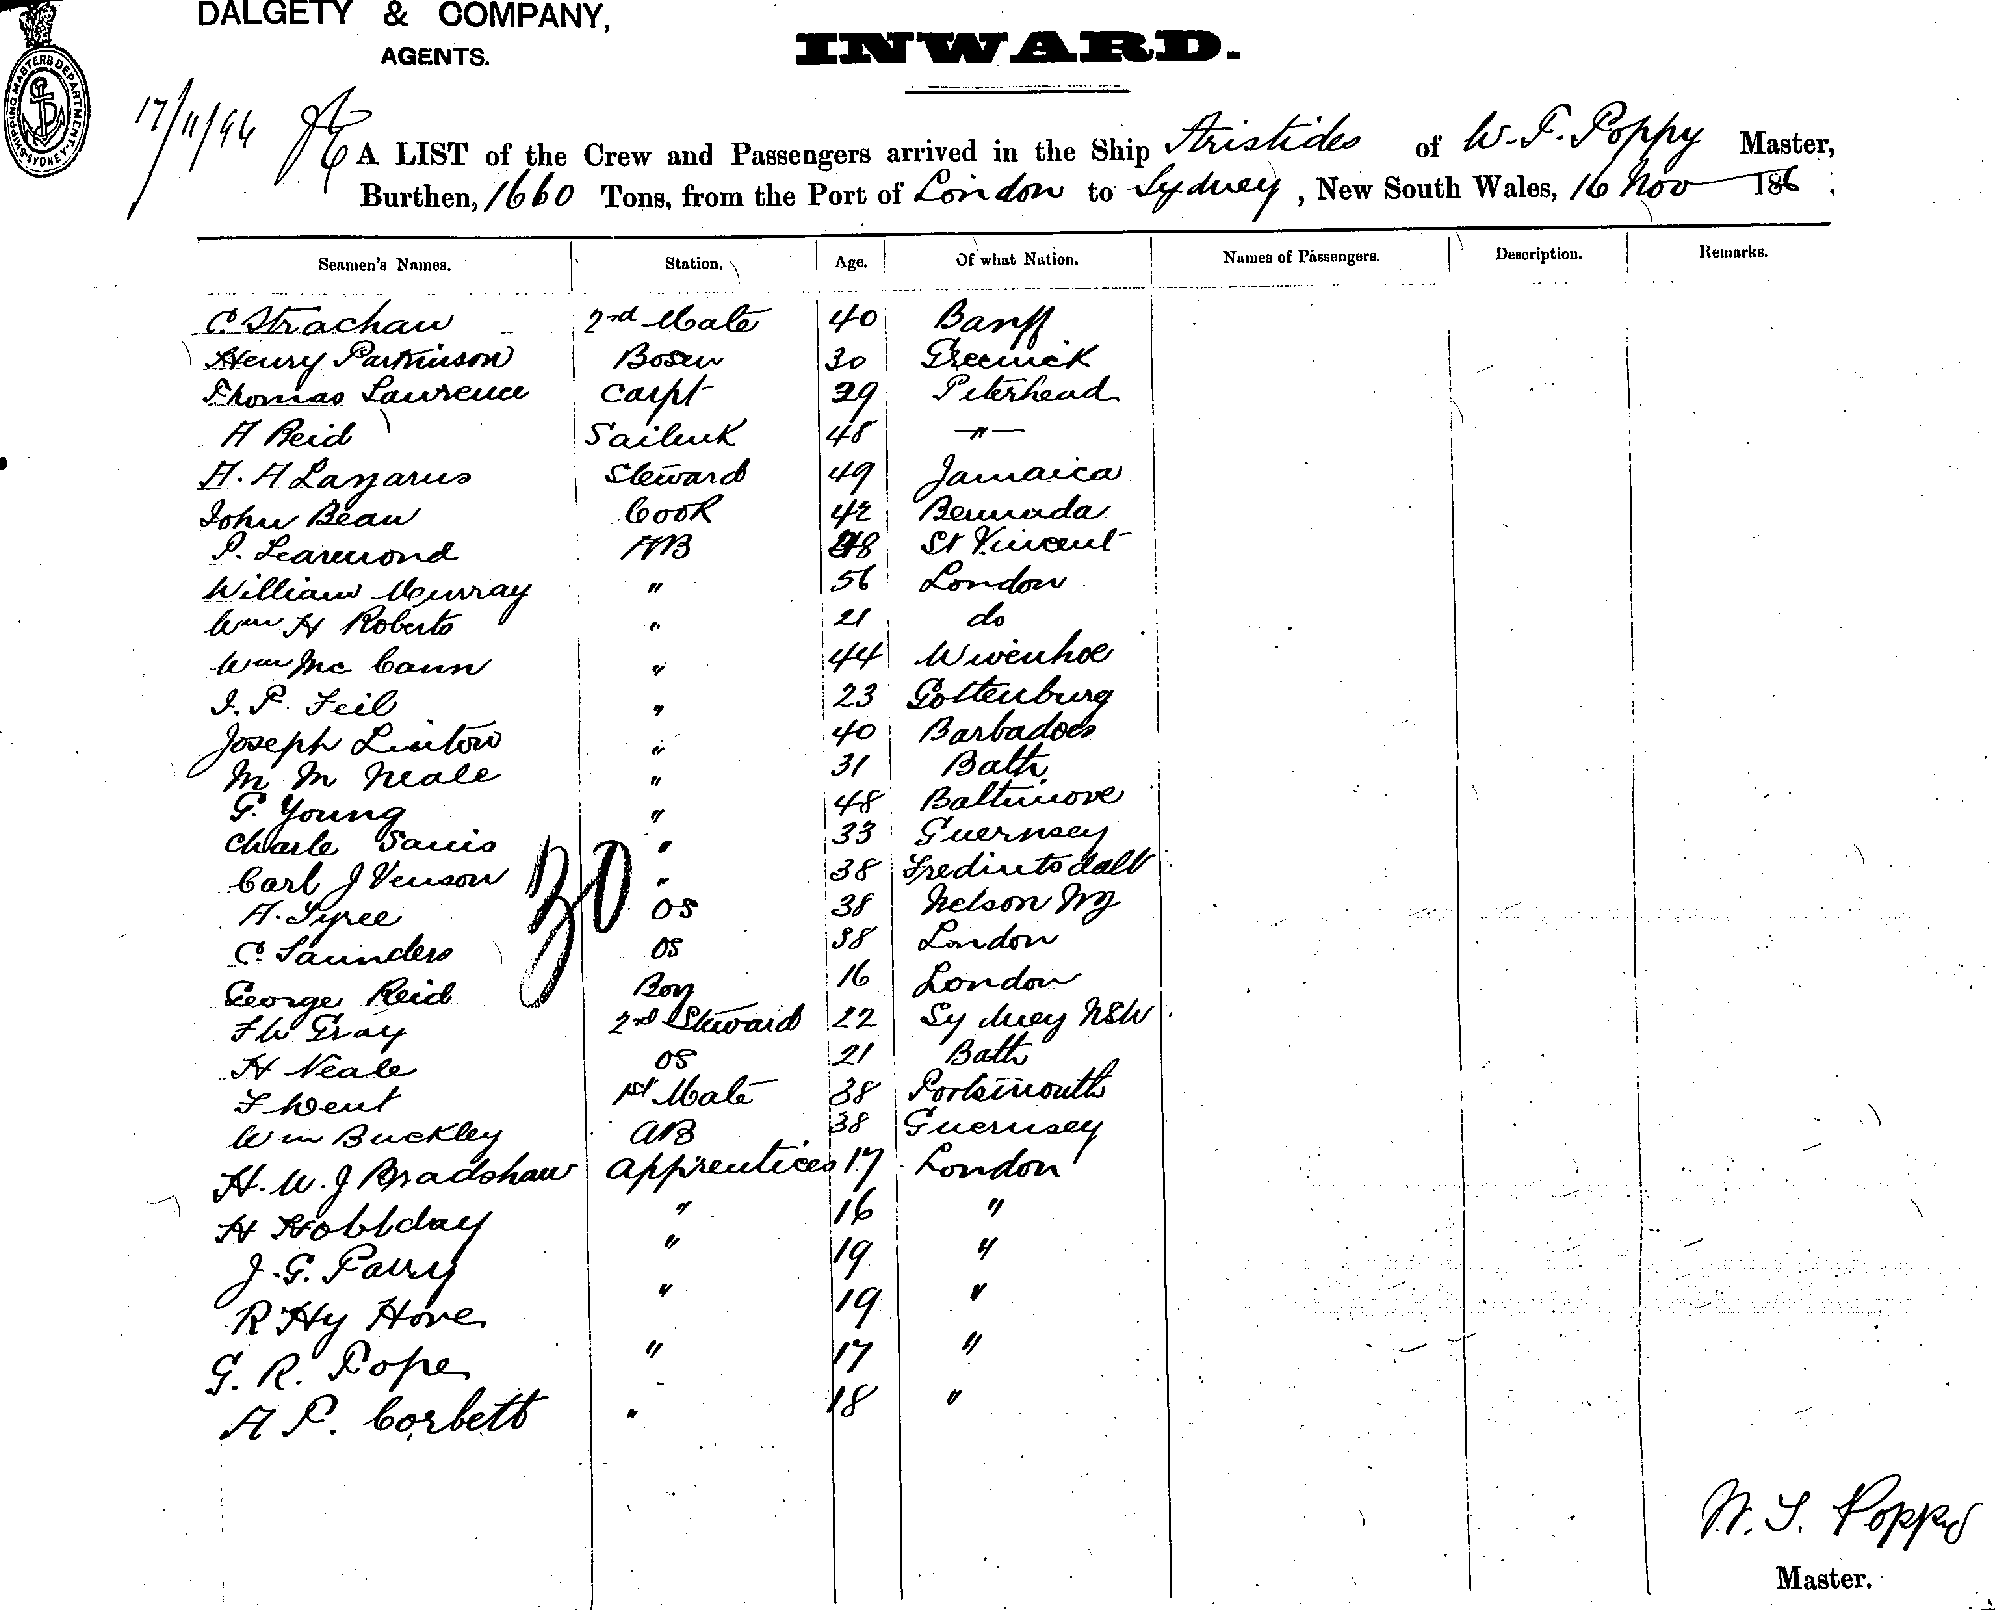 DALGETY & COMPANY,
AGENTS.
INWARD.
SHIPPING MASTERS DEPARTMENT SYDNEY
17/11/96
A LIST of the Crew and Passengers arrived in the Ship Aristides of W. T. Poppy Master,
Burthen, 1660 Tons, from the Port of London to Sydney, New South Wales, 16 Nov 186
Seamen's Names. Station. Age. Of what Nation. Names of Passengers. Description. Remarks.
C Strachan 2nd Mate 40 Banff
Henry Parkinson Bosen 30 Greenick
Thomas Lawrence Carpt 29 Peterhead
A Reid Sailmk 48 "
A. A Lazarus Steward 49 Jamaica
John Bean Cook 42 Bermuda
P. Learmond AB 48 St Vincent
William Murray " 56 London
Wm H Roberts " 21 do
Wm Mc Cann " 44 Wivenhoe
J. P. Feil " 23 Gottenburg
Joseph Linton " 40 Barbadoes
M M Neale " 31 Bath
G. Young " 48 Baltimore
Charle Sanis " 33 Guernsey
Carl J Venson " 38
A. Tyree OS 38 Nelson NZ
C Saunders OS 38 London
George Reid Boy 16 London
F W Gray 2nd Steward 22 Sydney NSW
H Neale OS 21 Bath
F Went 1st Mate 38 Portsmouth
Wm Buckley AB 38 Guernsey
H. W. J Bradshaw Apprentices 17 London
H Hobbday " 16 "
J. G. Parry " 19 "
R Hy Hore " 19 "
G. R. Pope " 17 "
A P. Corbett " 18 "
30
W. T. Poppy
Master.